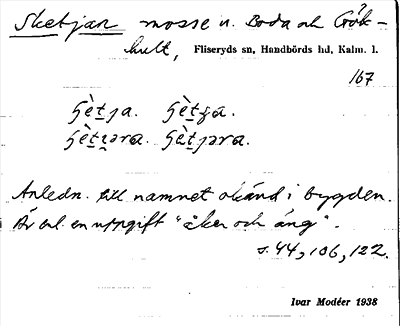 Sketjan mosse n. Boda och Gök-
hult, Fliseryds sn, Handbörds hd, Kalm. l.
167
Anledn. till namnet okänd i bygden.
Är enl. en uppgift "åker och äng".
s. 44, 106, 122.
Ivar Modéer 1938